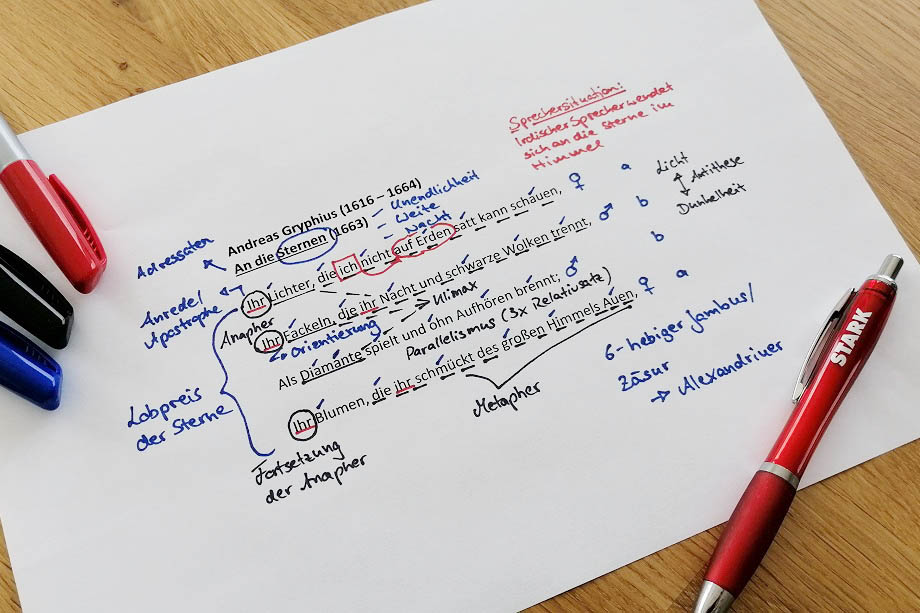 Sprechersituation:
Irdischer Sprecher wendet
sich an die Sterne im
Himmel
Andreas Gryphius (1616 – 1664)
An die Sternen (1663)
- Unendlichkeit
- Weite
- Nacht
Adressaten
Ihr Lichter, die ich nicht auf Erden satt kann schauen,
♀ a
Licht
↕ Antithese
Dunkelheit
Anrede/
Apostrophe
Anapher
Ihr Fackeln, die ihr Nacht und schwarze Wolken trennt,
♂ b
Orientierung
Klimax
Als Diamante spielt und ohn Aufhören brennt;
♂ b
Parallelismus (3x Relativsatz)
Ihr Blumen, die ihr schmückt des großen Himmels Auen,
♀ a
Metapher
Lobpreis
der Sterne
Fortsetzung
der Anapher
6-hebiger Jambus/
Zäsur
→ Alexandriner
STARK